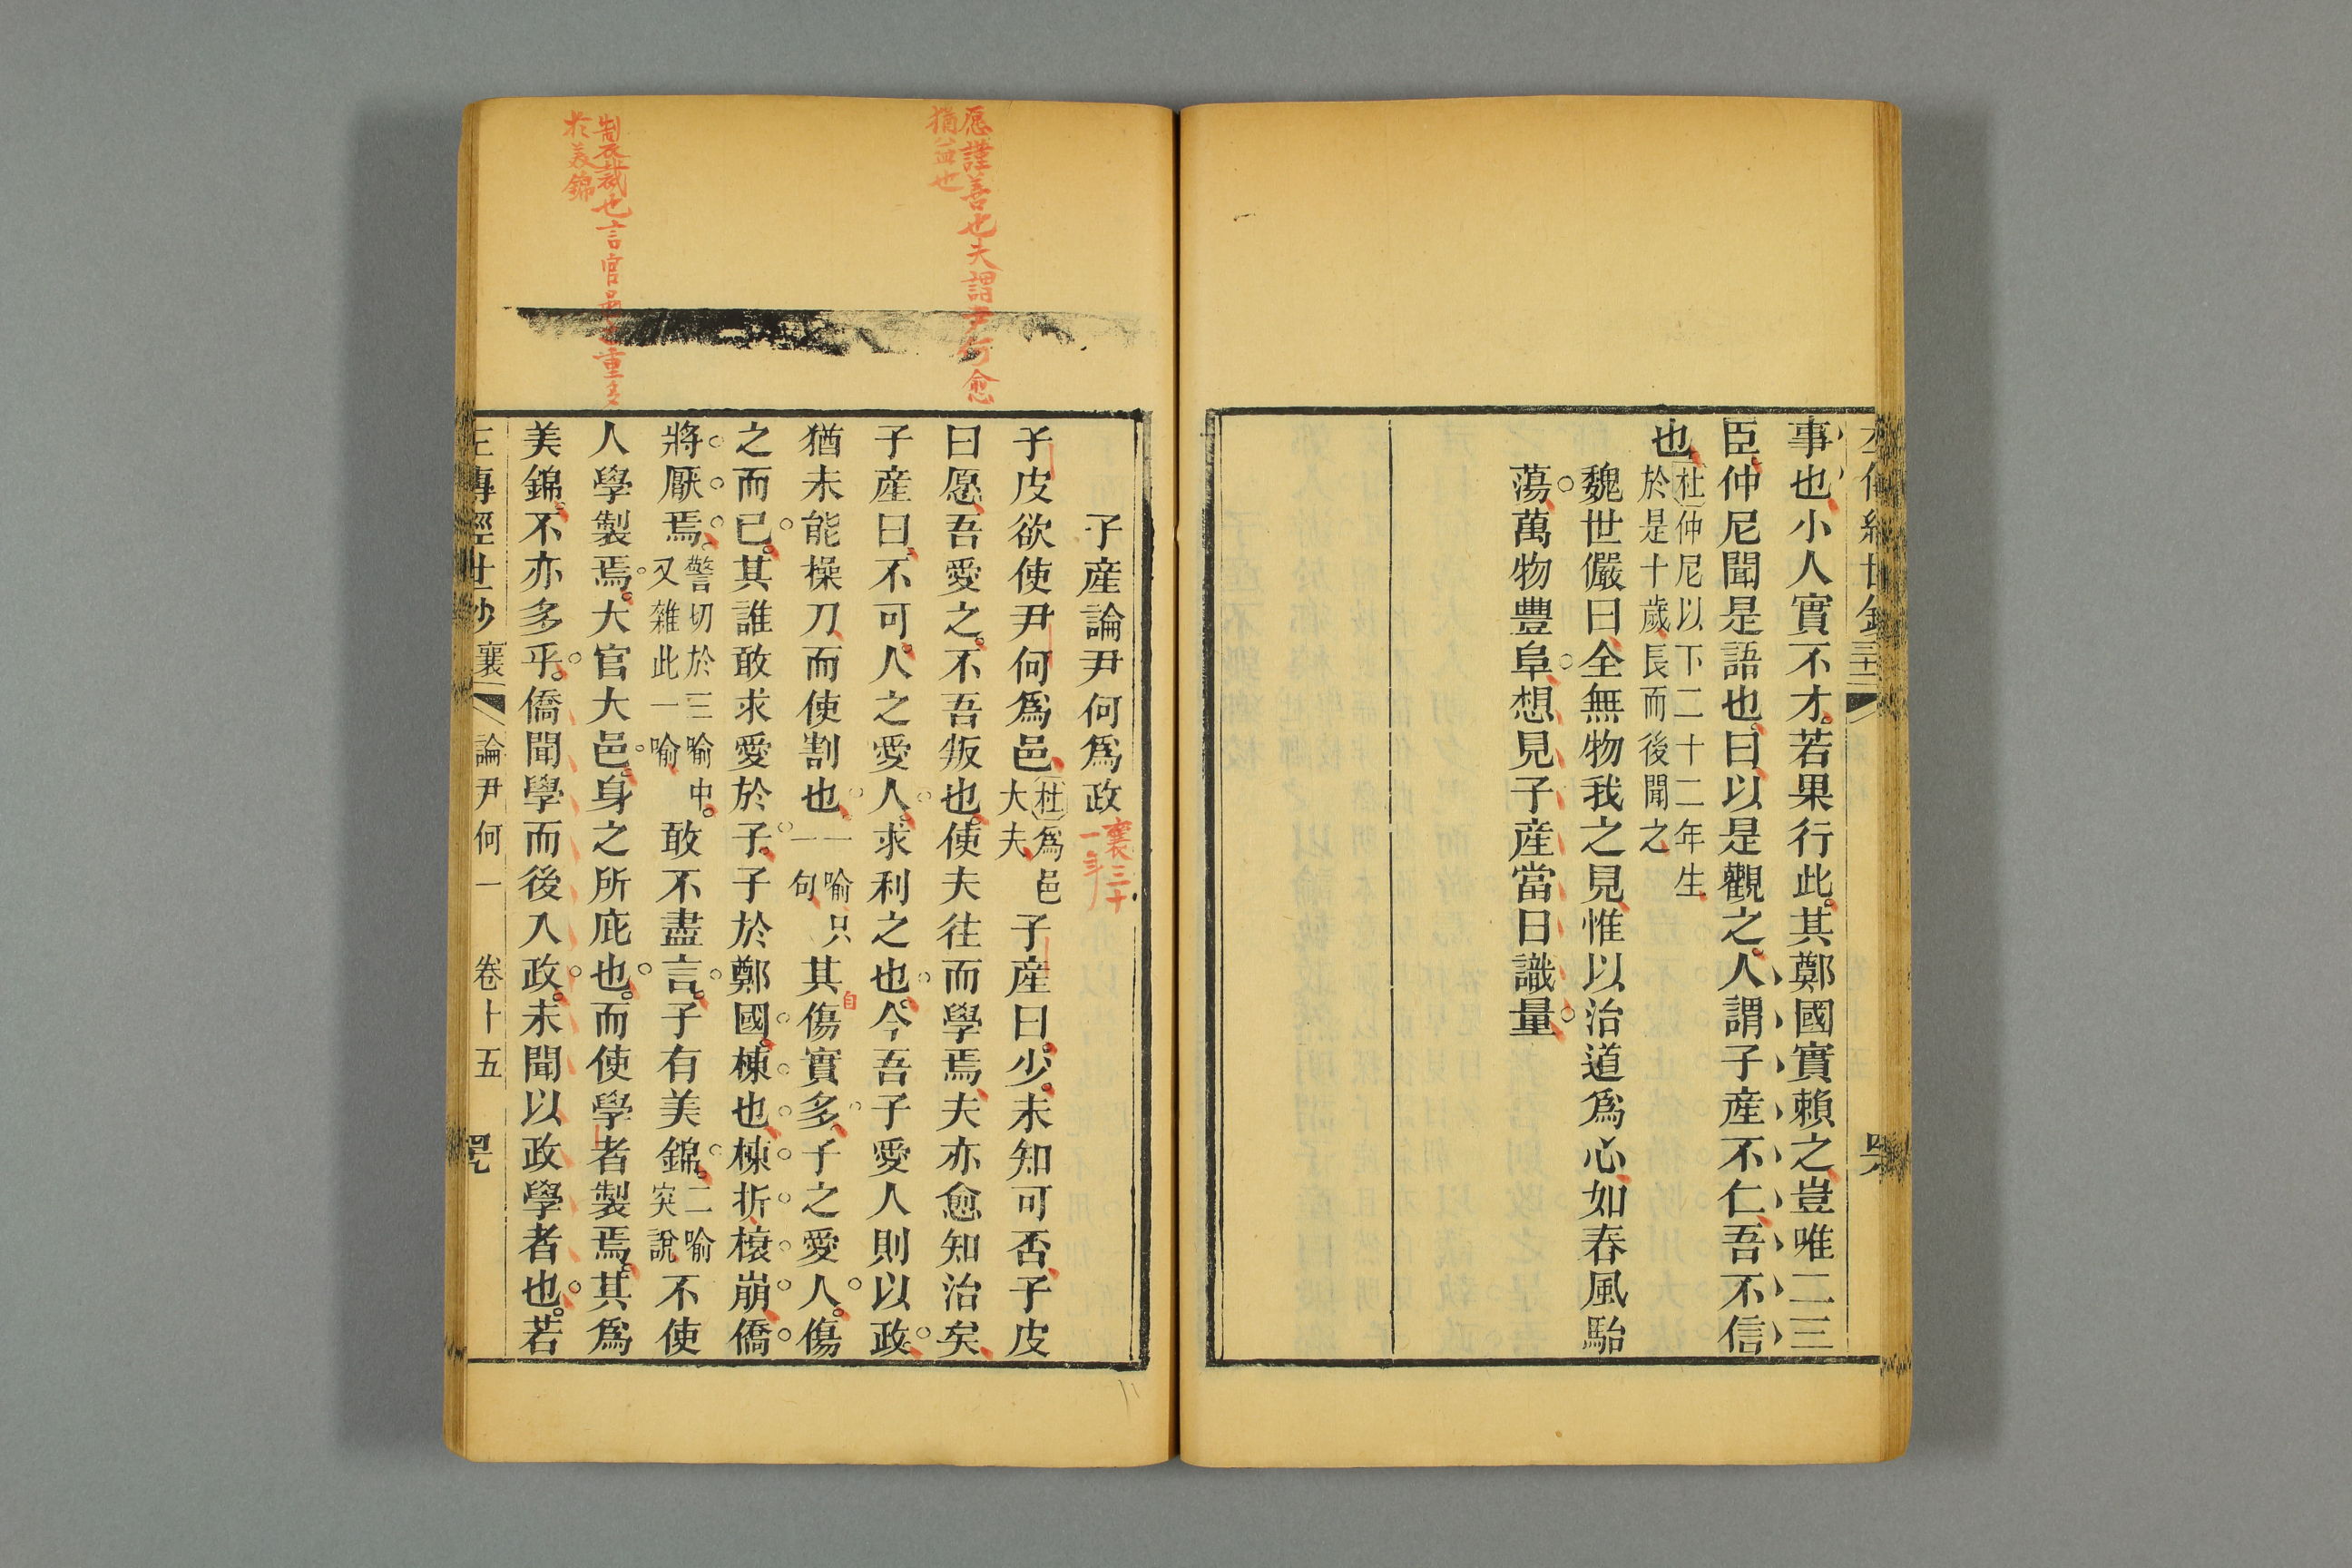 事也小人實不才若果行此其鄭國實賴之豈唯二三
臣仲尼聞是語也曰以是觀之人謂子產不仁吾不信
也杜仲尼以下二十二年生
於是十歲長而後聞之
魏世儼曰全無物我之見惟以治道爲心如春風駘
蕩萬物豐阜想見子產當日識量
愿謹善也夫謂尹何愈
猶益也
製裁也言官邑之重多
於美錦
子產論尹何爲政
襄三十
一年
子皮欲使尹何爲邑杜爲邑
大夫子產曰少未知可否子皮
曰愿吾愛之不吾叛也使夫往而學焉夫亦愈知治矣
子產曰不可人之愛人求利之也今吾子愛人則以政
猶未能操刀而使割也一喻只
一句其傷實多子之愛人傷
自
之而已其誰敢求愛於子子於鄭國棟也棟折榱崩僑
將厭焉警切於三喻中
又雜此一喻敢不盡言子有美錦二喻
突說不使
人學製焉大官大邑身之所庇也而使學者製焉其爲
美錦不亦多乎僑聞學而後入政未聞以政學者也若
左傳經世鈔 襄 論尹何一 卷十五